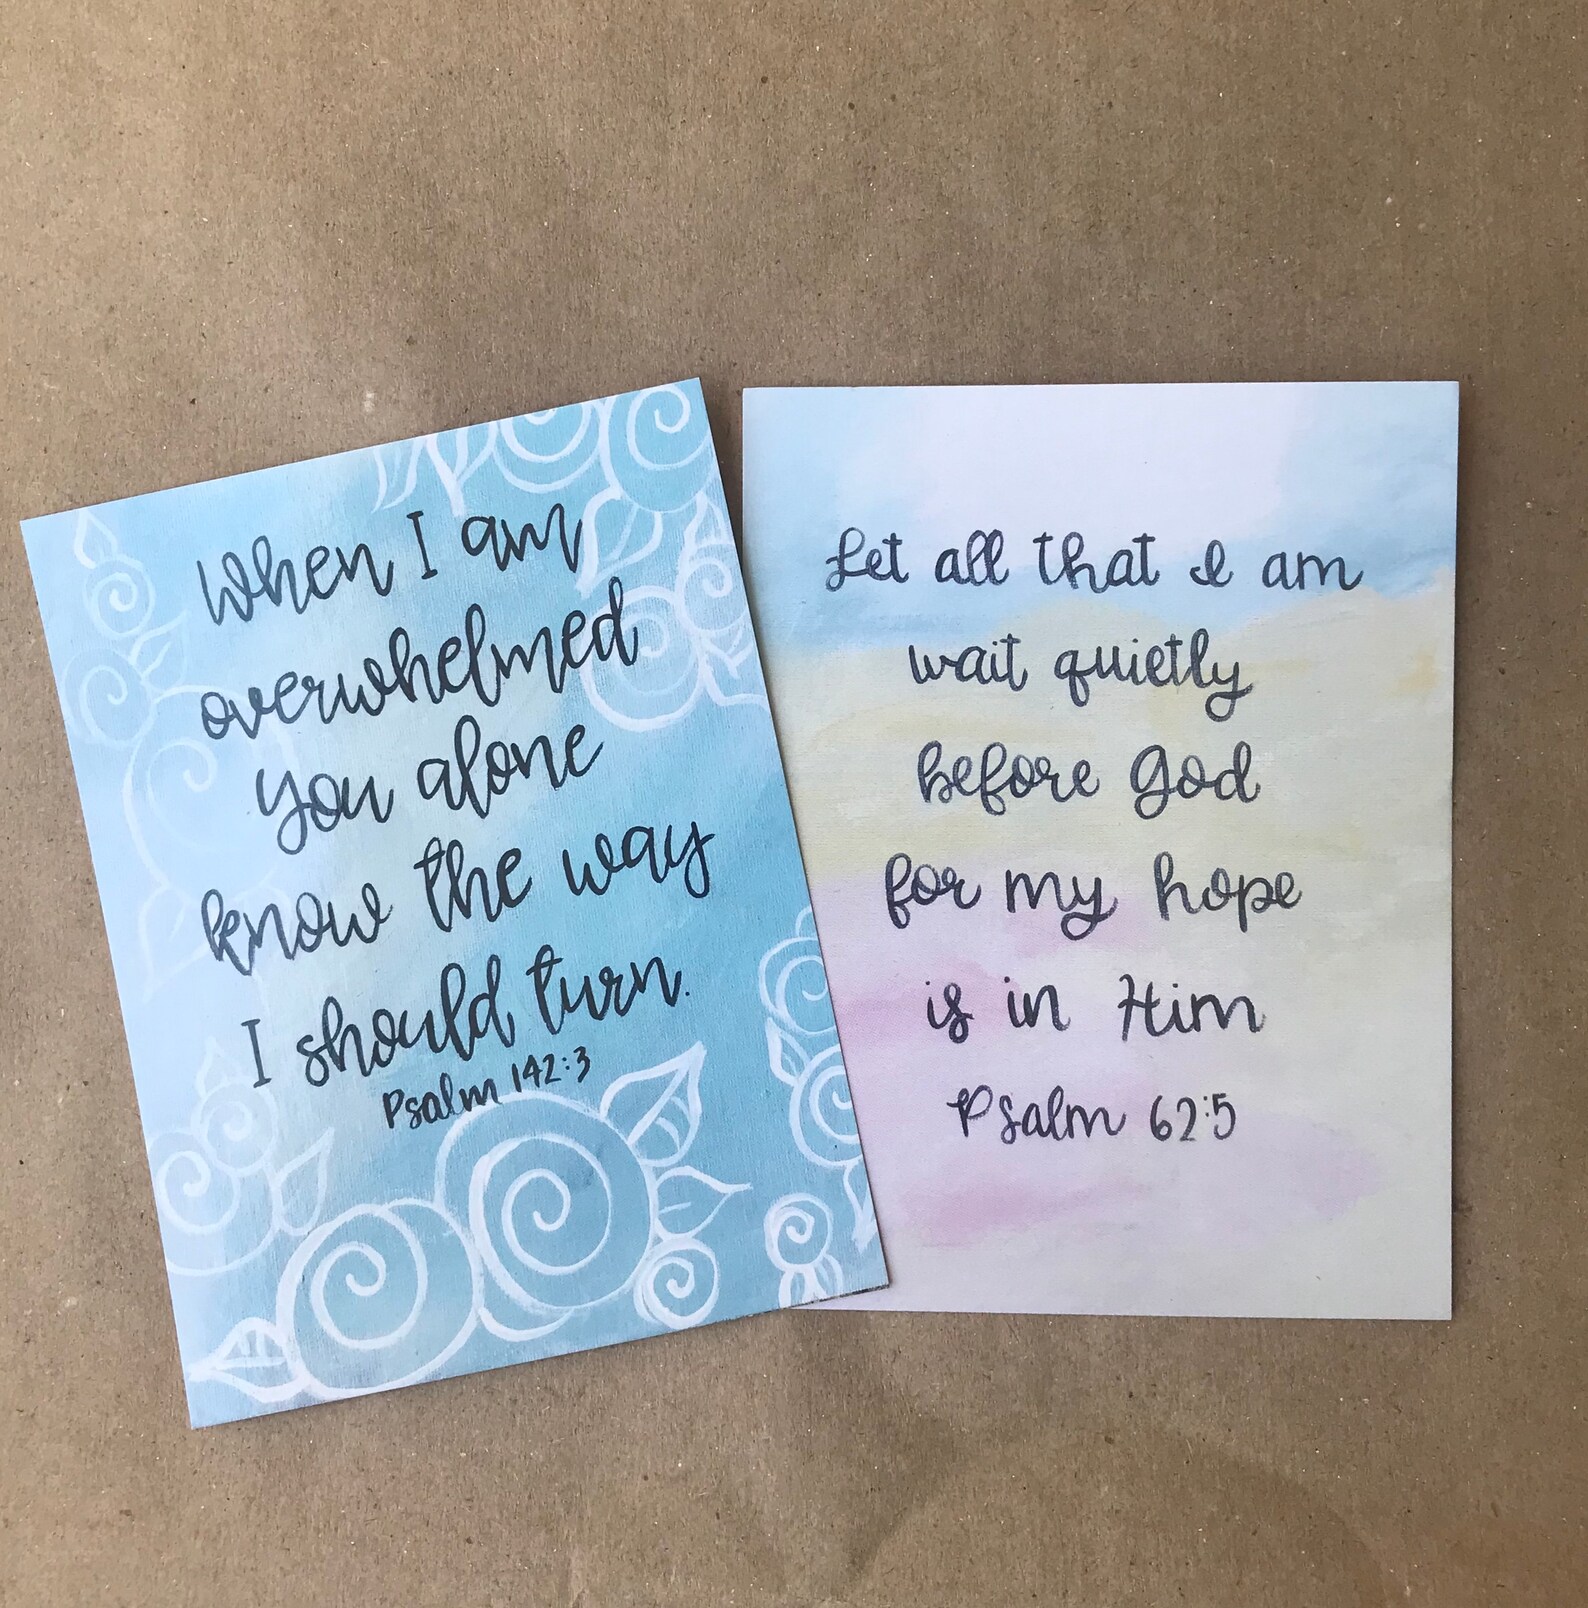 When I am
overwhelmed
you alone
know the way
I should turn.
Psalm 142:3
Let all that I am
wait quietly
before God
for my hope
is in Him
Psalm 62:5